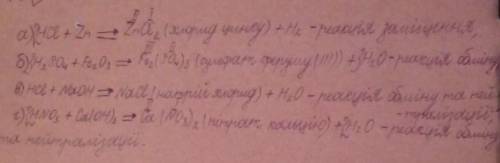 а) 2HCl + Zn ⇌ ZnCl₂ (хлорид цинку) + H₂ - реакція заміщення,
б) 3H₂SO₄ + Fe₂O₃ ⇌ Fe₂(SO₄)₃ (сульфат феруму (III)) + 3H₂O - реакція обміну
в) HCl + NaOH ⇌ NaCl (натрій хлорид) + H₂O - реакція обміну та ней-
тралізації.
г) 2HNO₃ + Ca(OH)₂ ⇌ Ca(NO₃)₂ (нітрат кальцію) + 2H₂O - реакція обміну
та нейтралізації.